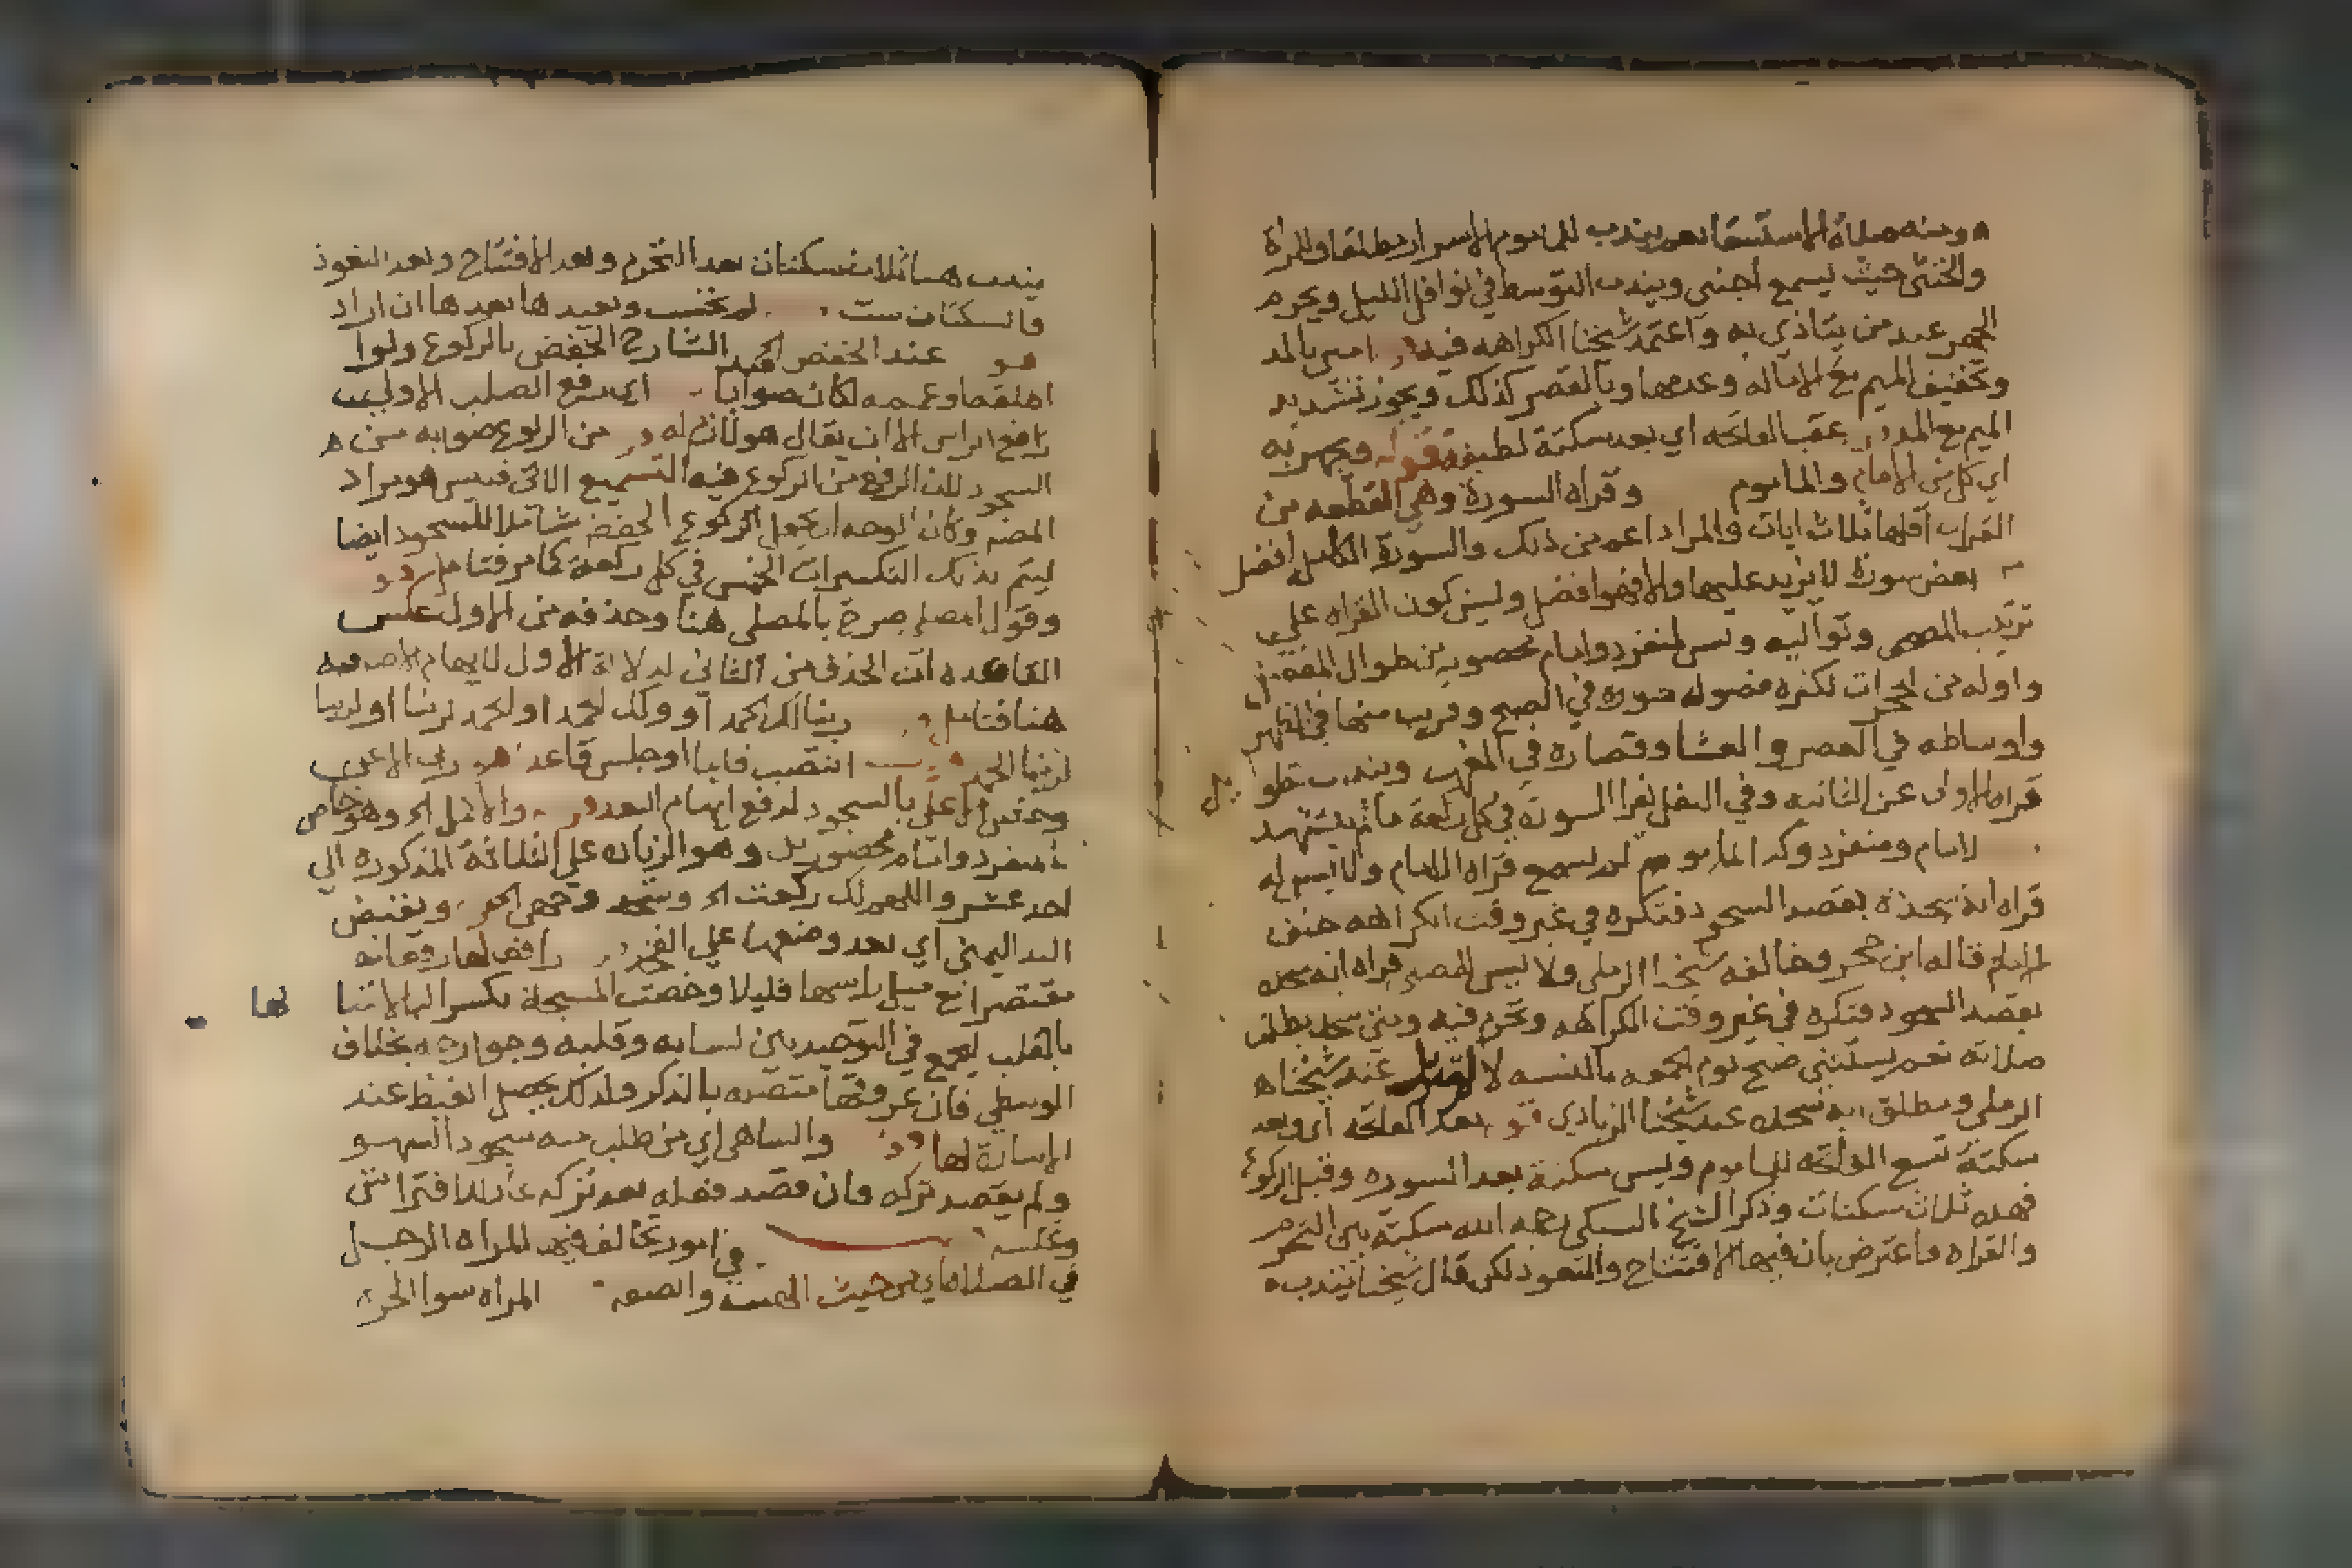 ومنه صلاة الاستسقا نعم يندب للماموم الاسرار مطلقا وللمراة
والخنثى حيث يسمع اجنبي ويندب التوسط في نوافل الليل ويحرم
الجهر عند من يتاذي به واعتمد شيخنا الكراهه فيه امين بالمد
وتخفيف الميم مع الامالة وعدمها وبالقصر كذلك ويجوز تشديد
الميم مع المد عقب الفاتحه اي بعد سكتة لطيفة قوله ويجهر به
اي كل من الامام والماموم وقراه السورة وهي القطعه من
القران اقلها ثلاث ايات والمراد اعم من ذلك والسورة الكامله افضل
من بعض سورة لا يزيد عليها والا فهو افضل وليس كون القراه علي
ترتيب المصحف وتواليه وسن لمنفرد وامام محصورين طوال المفصل
واوله من الحجرات لكثرة فصوله سورة في الصبح وقريب منها في الظهر
واوساطه في العصر والعشا وقصاره في المغرب ويندب تطويل
قراه الاولى عن الثانيه وفي النفل يقرا السورة في كل ركعة ما لم يتشهد
لامام ومنفرد وكذا الماموم لم يسمع قراه الامام ولا يسن له
قراه اية سجدة بقصد السجود فتكره في غير وقت الكراهه
قاله ابن حجر وخالفه شيخنا الرملي ولا يسن للمصلي قراه اية سجدة
بقصد السجود فتكره في غير وقت الكراهه وتحرم فيه ومتى سجد بطلت
صلاته نعم يستثنى صبح يوم الجمعه بالنسبه لالم تنزيل عند شيخنا
الرملي ومطلق اية سجده عند شيخنا الزيادي قوله بعد الفاتحه اي وبعد
سكتة تسع الفاتحه للماموم ويسن سكتة بعد السوره وقبل الركوع
فهذه ثلاث سكتات وذكر الشيخ السبكي رحمه الله سكتة بين التحرم
والقراه واعترض بان فيها الافتتاح والتعوذ لكن قال شيخنا يندب
يندب هنا ثلاث سكتات بعد التحرم وبعد الافتتاح وبعد التعوذ
فالسكتات ست ويعيدها بعدها ان اراد
هو عند الخفض قيد الشارح الخفض بالركوع ولو
اطلقه او عممه لكان صوابا اي رفع الصلب الاولى
رافع الراس الا ان يقال هو لازم له من الركوع صوابه من
السجود لان الرفع من الركوع فيه التسميع الاتي فليس هو مراد
المصنف وكان الوجه ان يجعل الركوع الخفض شاملا للسجود ايضا
ليتم بذلك التكبيرات الخمس في كل ركعة كما مر فتامل
وقول المصلي صرح بالمصلي هنا وحذفه من الاول عكس
القاعده ان الحذف من الثاني لدلالة الاول لايهام
هنا فتامل ربنا لك الحمد او ولك الحمد او الحمد لربنا او لربنا
لربنا الحمد انتصب قايما او جلس قاعدا هو ربي الاعلى
ويختص الاعلى بالسجود لدفع ايهام البعد والاكمل الخ وهو خاص
بمنفرد وامام محصورين وهو الزيادة على الثلاثة المذكوره الي
احد عشر واللهم لك ركعت الخ وسجد وجهي الخ ويقبض
اليد اليمنى اي بعد وضعها علي الفخذ رافعا لها رفعانه
مقتصرا مع ميل راسها قليلا وخصت المسبحة بكسر البا لانها لها
بالقلب ليجمع في التوحيد بين لسانه وقلبه وجوارحه بخلاف
الوسطي فان عروقها متصله بالذكر ولذلك يحصل الغيظ عند
الاشارة لها والساهي اي من طلب منه سجود السهو
ولم يقصد تركه فان قصد فعله بعد تركه عاد للافتراش
وعكسه في امور تخالف فيها المراه الرجل
في الصلاة اي من حيث الهيئة والصفه المراه سوا الحرة